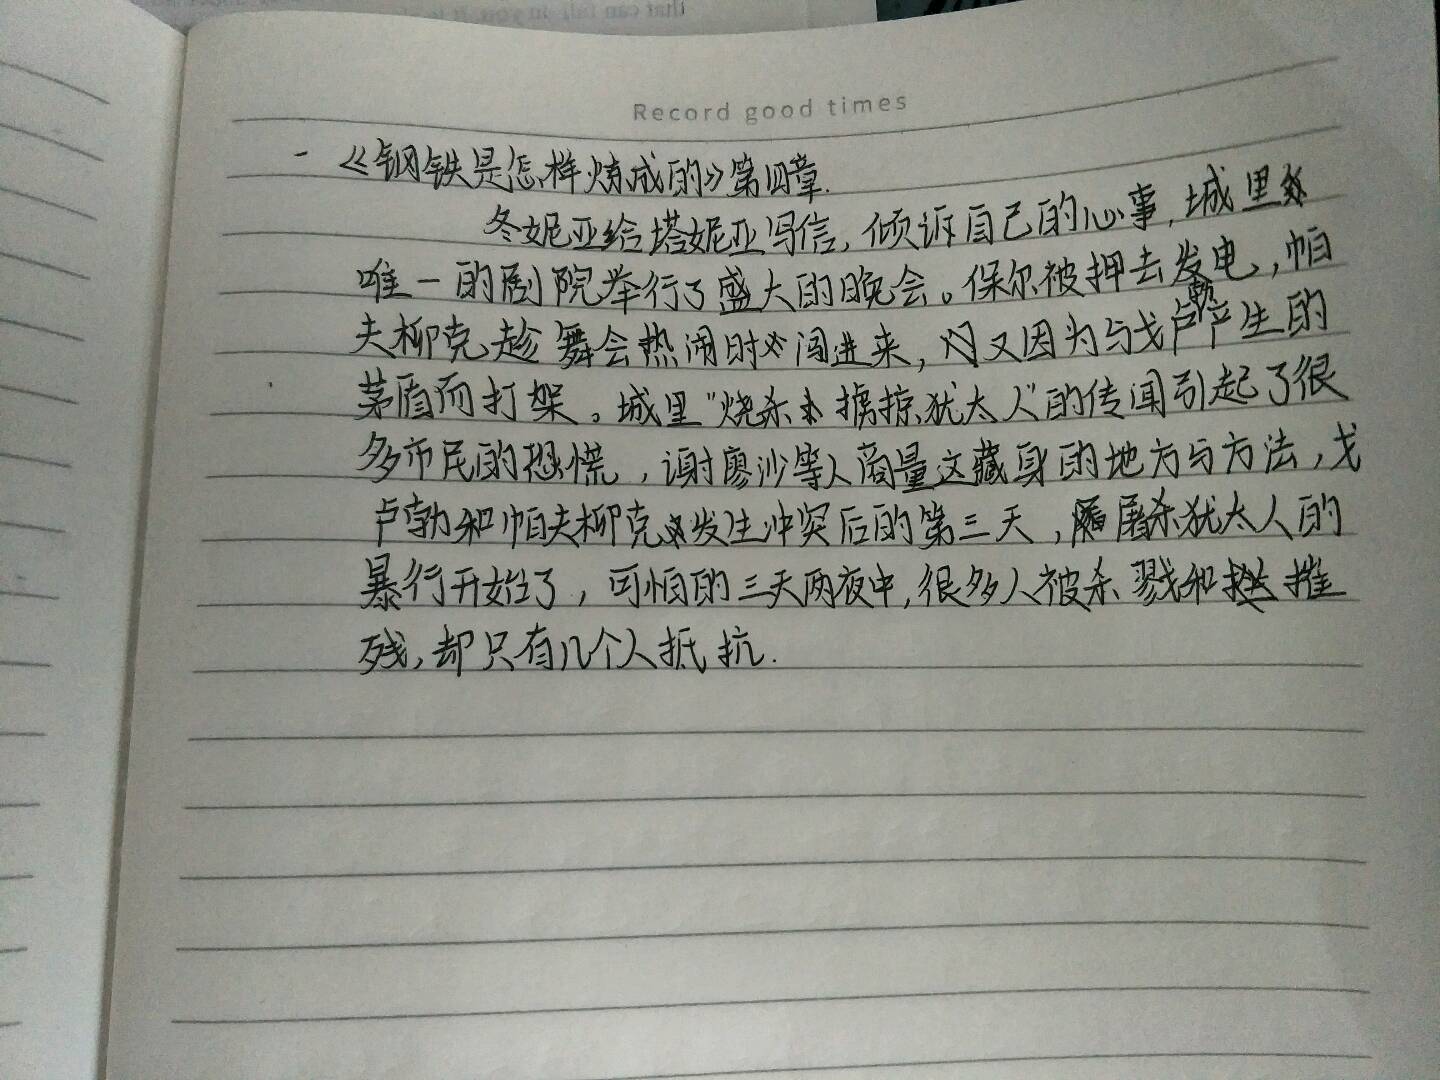 that can fall in you, it
Record good times
- 《钢铁是怎样炼成的》第四章.
冬妮亚给塔妮亚写信,倾诉自己的心事,城里
唯一的剧院举行了盛大的晚会。保尔被押去发电,帕
夫柳克趁舞会热闹时闯进来,又因为与戈卢勃产生的
茅盾而打架。城里"烧杀掳掠犹太人"的传闻引起了很
多市民的恐慌,谢廖沙等人商量这藏身的地方与方法,戈
卢勃和帕夫柳克发生冲突后的第三天,屠杀犹太人的
暴行开始了,可怕的三天两夜中,很多人被杀戮和摧
残,却只有几个人抵抗.